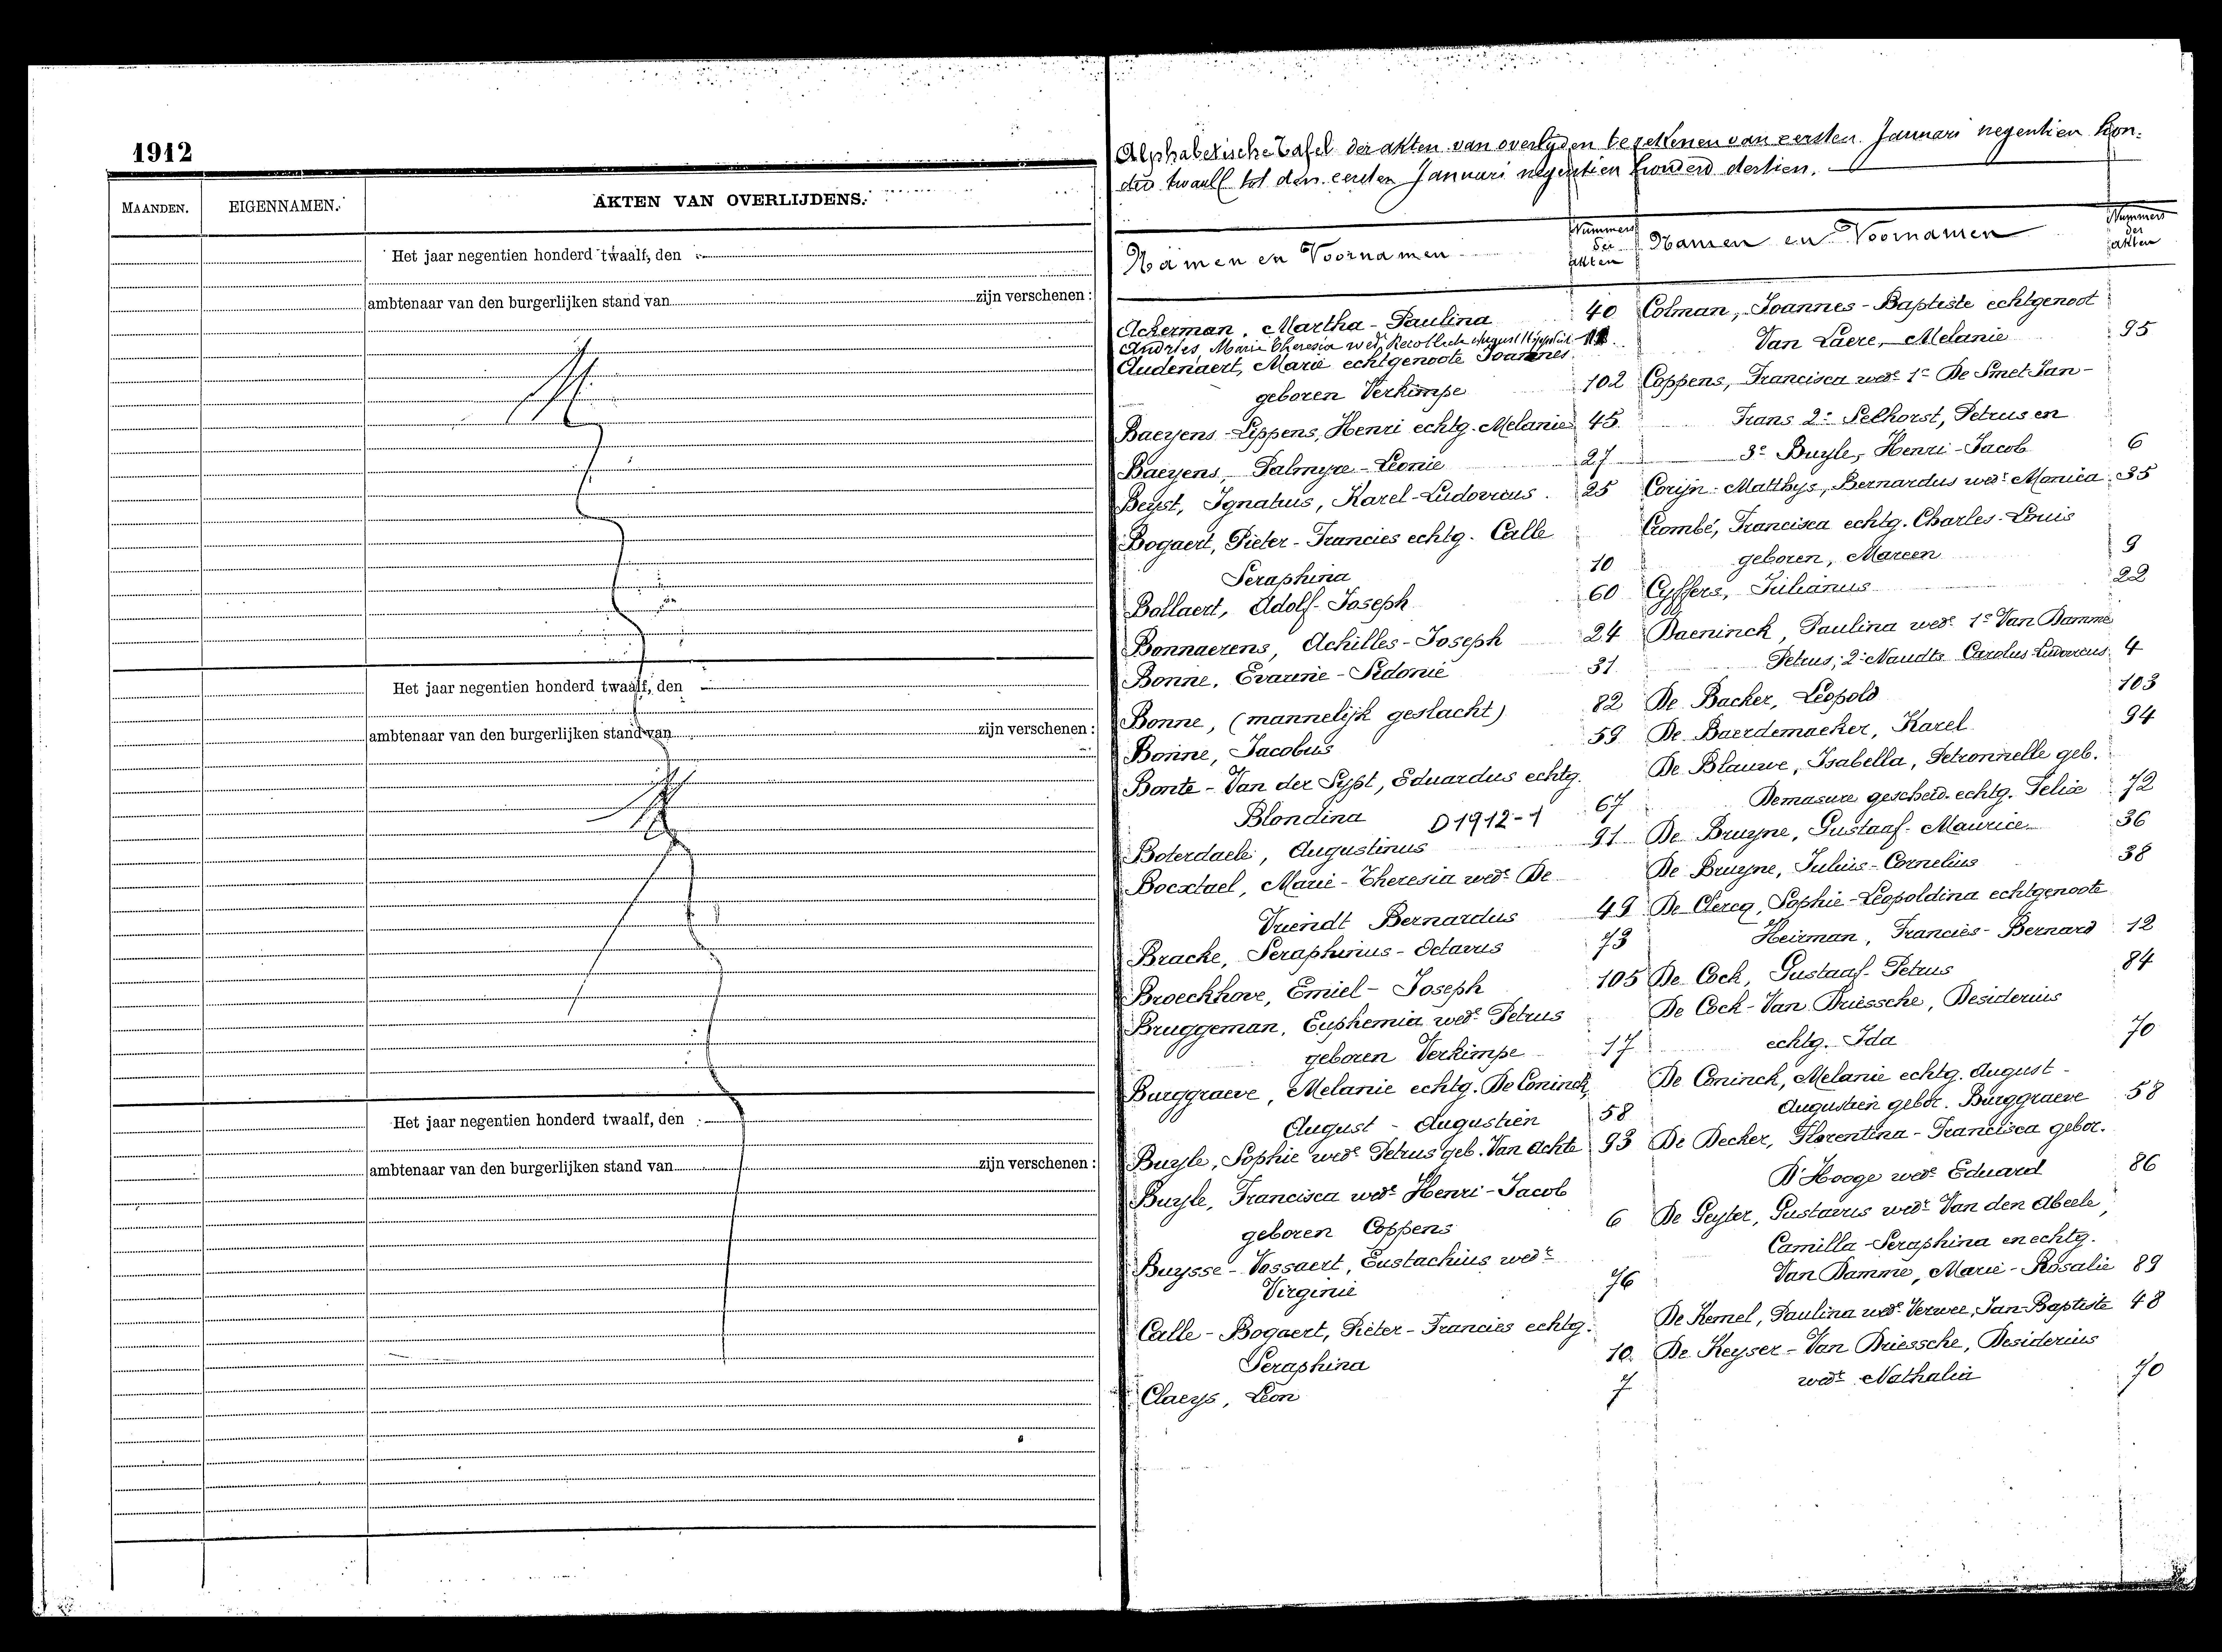 1912
MAANDEN.
EIGENNAMEN.
AKTEN VAN OVERLIJDENS.
Het jaar negentien honderd twaalf, den
ambtenaar van den burgerlijken stand van zijn verschenen :
Het jaar negentien honderd twaalf, den
ambtenaar van den burgerlijken stand van zijn verschenen :
Het jaar negentien honderd twaalf, den
ambtenaar van den burgerlijken stand van zijn verschenen :
Alphabetische Tafel der akten van overlyden te rekenen van eersten Januari negentien hon-
derd twaalf tot den eersten Januari negentien honderd dertien.
Namen en Voornamen
Nummers
der
akten
Ackerman, Martha-Paulina 40
Andries, Marie Theresia wede August 11
Audenaert, Marie echtgenoote Joannes
geboren Verkimpe 102
Baeyens-Lippens, Henri echtg. Melanie 45
Baeyens, Palmyre-Leonie 27
Beyst, Ignatius, Karel-Ludovicus 25
Bogaert, Pieter-Francies echtg. Calle
Seraphina 10
Bollaert, Adolf-Joseph 60
Bonnaerens, Achilles-Joseph 24
Bonne, Evarine-Sidonie 31
Bonne, (mannelijk geslacht) 82
Bonne, Jacobus 59
Bonte-Van der Sypt, Eduardus echtg.
Blondina 67
D1912-1
Boterdaele, Augustinus 91
Bocxtael, Marie-Theresia wede De
Vriendt Bernardus 49
Bracke, Seraphinus-Octavus 73
Broeckhove, Emiel-Joseph 105
Bruggeman, Euphemia wede Petrus
geboren Verkimpe 17
Burggraeve, Melanie echtg. De Coninck,
August-Augustien 58
Buyle, Sophie wede Petrus geb. Van Achte 93
Buyle, Francisca wede Henri-Jacob
geboren Coppens 6
Buysse-Vossaert, Eustachius wedr
Virginie 76
Calle-Bogaert, Pieter-Francies echtg.
Seraphina 10
Claeys, Leon 7
Namen en Voornamen
Nummers
der
akten
Colman, Joannes-Baptiste echtgenoot
Van Laere, Melanie 95
Coppens, Francisca wede 1e De Smet Jan-
Frans 2e Selhorst, Petrus en
3e Buyle, Henri-Jacob 6
Corijn-Matthys, Bernardus wedr Monica 35
Crombé, Francisca echtg. Charles-Louis
geboren, Mareen 9
Cyffers, Julianus 22
Daeninck, Paulina wede 1e Van Damme
Petrus, 2e Naudts Carolus Ludovicus 4
De Backer, Leopold 103
De Baerdemaeker, Karel 94
De Blauwe, Isabella, Petronnelle geb.
Demasure gescheid. echtg. Felix 72
De Bruyne, Gustaaf-Maurice 36
De Bruyne, Julius-Cornelius 38
De Clercq, Sophie-Leopoldina echtgenoote
Heirman, Francies-Bernard 12
De Cock, Gustaaf-Petrus 84
De Cock-Van Driessche, Desiderius
echtg. Ida 70
De Coninck, Melanie echtg. August-
Augustien gebor. Burggraeve 58
De Decker, Florentina-Francisca gebor.
D'Hooge wede Eduard 86
De Geyter, Gustavus wedr Van den Abeele,
Camilla-Seraphina en echtg.
Van Damme, Marie-Rosalie 89
De Kemel, Paulina wede Verwee, Jan-Baptiste 48
De Keyser-Van Driessche, Desiderius
wedr Nathalia 70